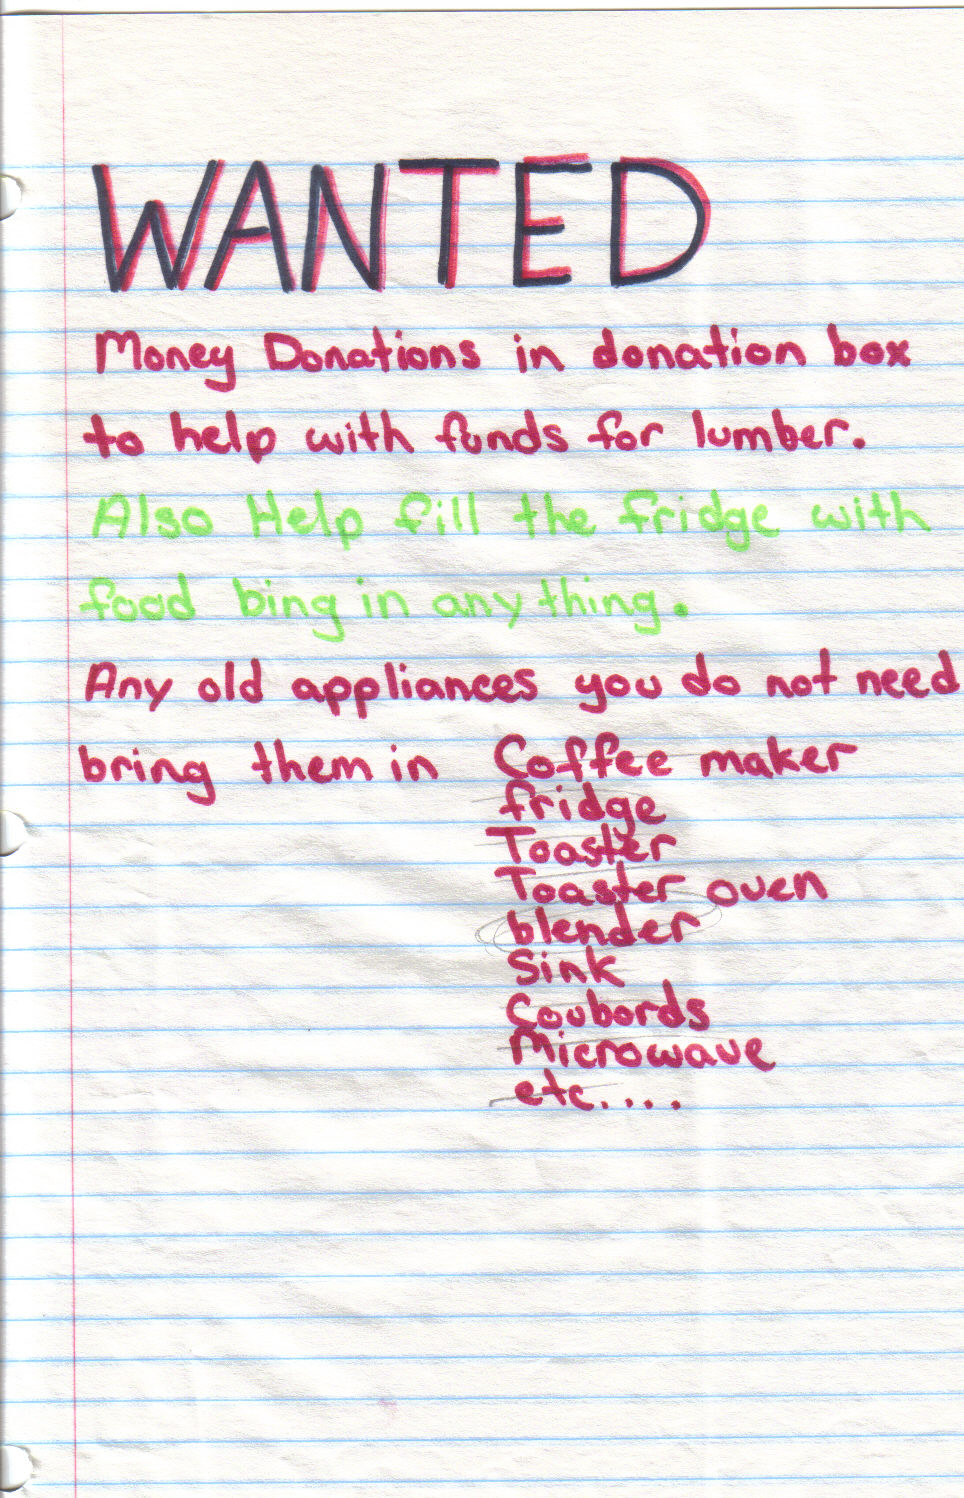 WANTED
Money Donations in donation box
to help with funds for lumber.
Also Help fill the fridge with
food bing in any thing.
Any old appliances you do not need
bring them in Coffee maker
fridge
Toaster
Toaster oven
blender
Sink
Coubords
Microwave
etc....